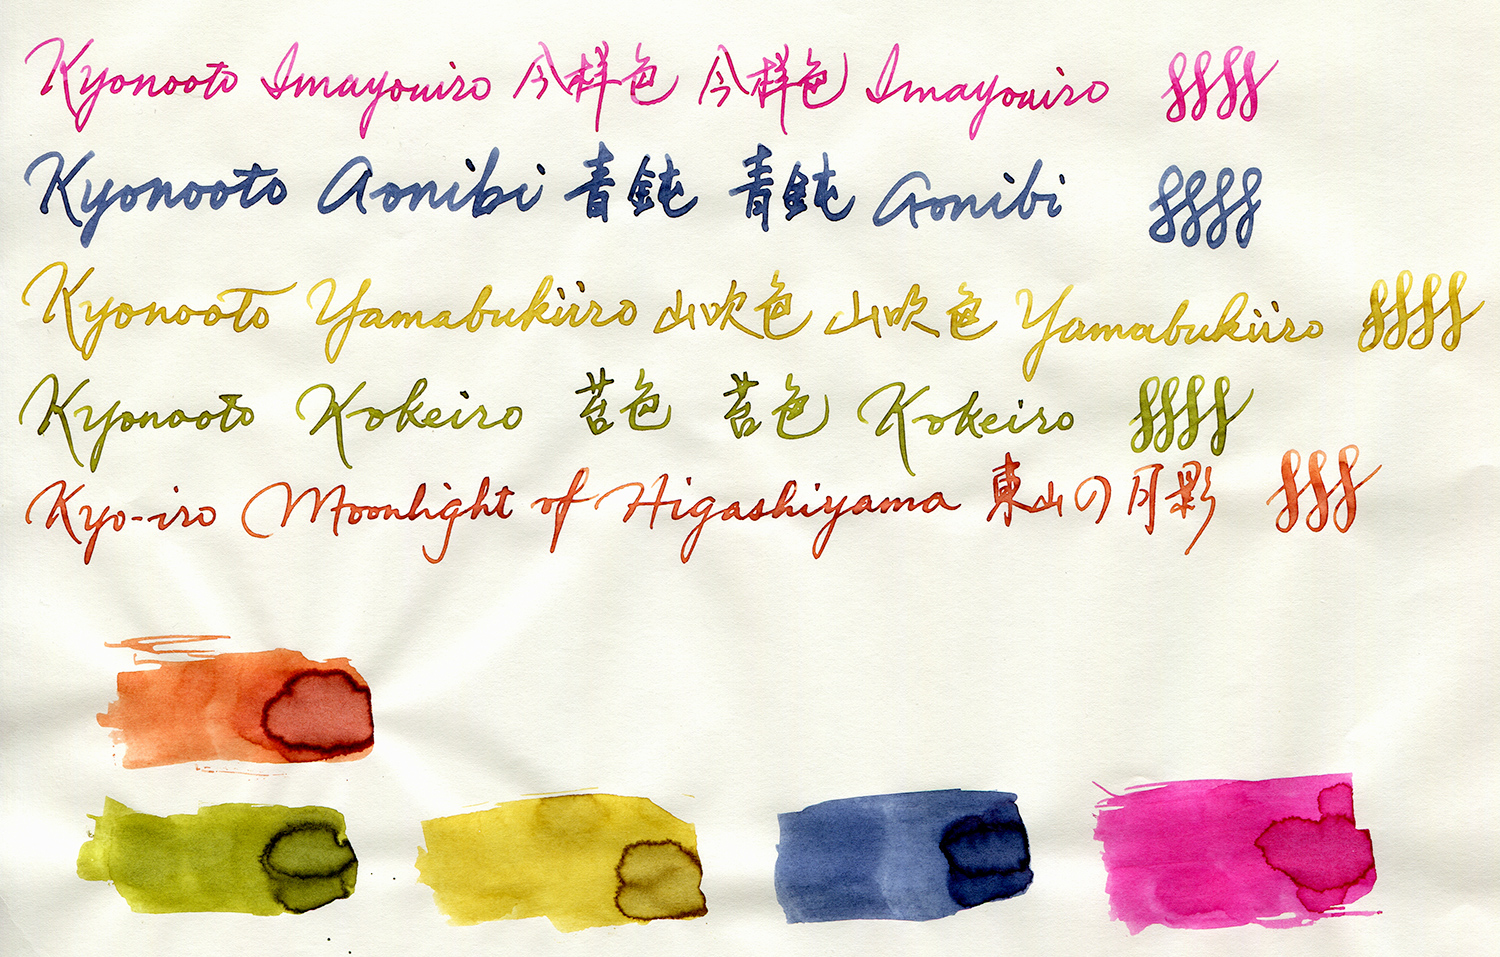 Kyonooto Imayouiro 今样色 今样色 Imayouiro
Kyonooto Aonibi 青鈍 青鈍 Aonibi
Kyonooto Yamabukiiro 山吹色 山吹色 Yamabukiiro
Kyonooto Kokeiro 苔色 苔色 Kokeiro
Kyo-iro Moonlight of Higashiyama 東山の月影